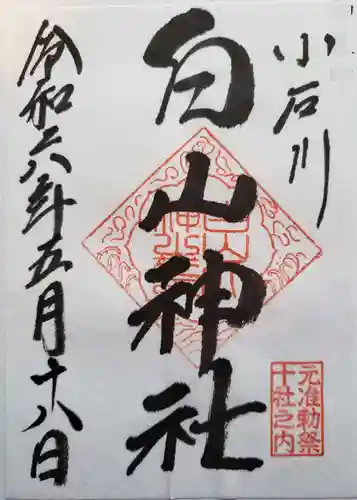 小石川
白山神社
元准勅祭
十社之内
令和六年五月十八日